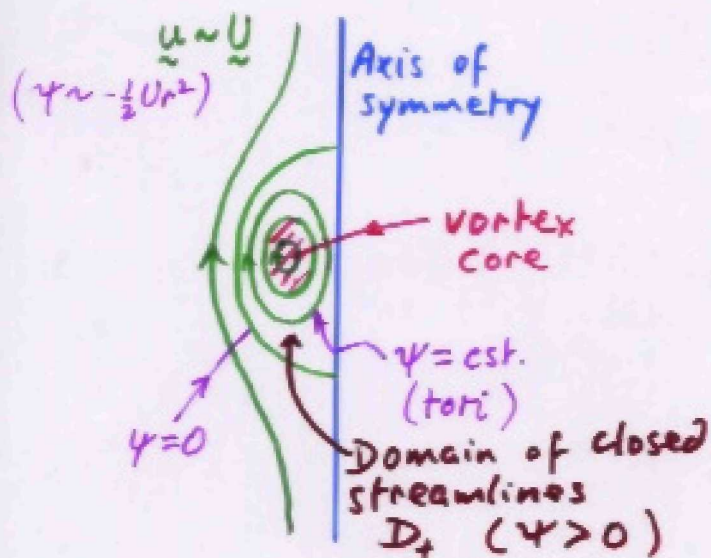 u ~ U
(ψ ~ -½Ur²)
Axis of
symmetry
vortex
core
ψ = cst.
(tori)
ψ=0
Domain of closed
streamlines
D₊ (ψ > 0)